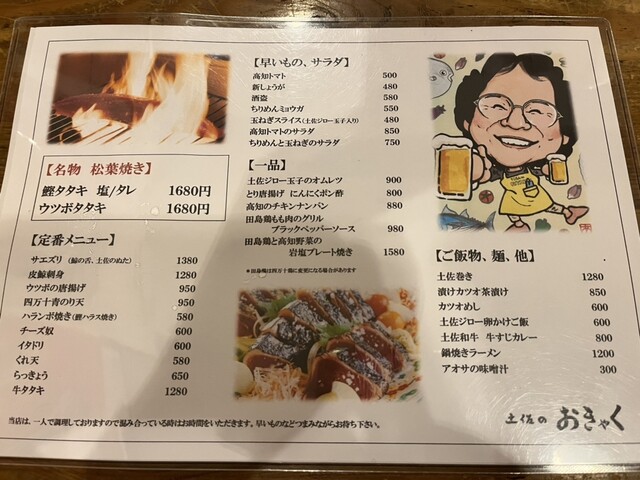 【名物 松葉焼き】
鰹タタキ 塩/タレ 1680円
ウツボタタキ 1680円
【定番メニュー】
サエズリ（鯨の舌、土佐のぬた） 1380
皮鯨刺身 1280
ウツボの唐揚げ 950
四万十青のり天 950
ハランボ焼き（鰹ハラス焼き） 580
チーズ奴 600
イタドリ 600
くれ天 580
らっきょう 650
牛タタキ 1280
【早いもの、サラダ】
高知トマト 500
新しょうが 480
酒盗 580
ちりめんミョウガ 550
玉ねぎスライス（土佐ジロー玉子入り） 480
高知トマトのサラダ 850
ちりめんと玉ねぎのサラダ 750
【一品】
土佐ジロー玉子のオムレツ 900
とり唐揚げ にんにくポン酢 800
高知のチキンナンバン 880
田島鶏もも肉のグリル
ブラックペッパーソース 980
田島鶏と高知野菜の
岩塩プレート焼き 1580
＊田島鶏は四万十鶏に変更になる場合があります
【ご飯物、麺、他】
土佐巻き 1280
漬けカツオ茶漬け 850
カツオめし 600
土佐ジロー卵かけご飯 600
土佐和牛 牛すじカレー 800
鍋焼きラーメン 1200
アオサの味噌汁 300
土佐の おきゃく
当店は、一人で調理しておりますので混み合っている時はお時間をいただきます。早いものなどつまみながらお待ち下さい。